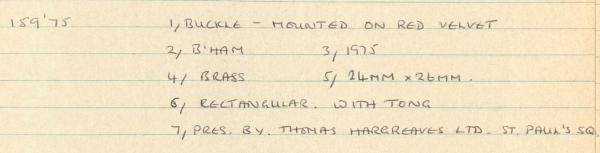 159'75 1, BUCKLE - MOUNTED ON RED VELVET
2, B'HAM 3, 1975
4, BRASS 5, 24MM × 26MM.
6, RECTANGULAR. WITH TONG
7, PRES. BY. THOMAS HARGREAVES LTD. ST. PAUL'S SQ.